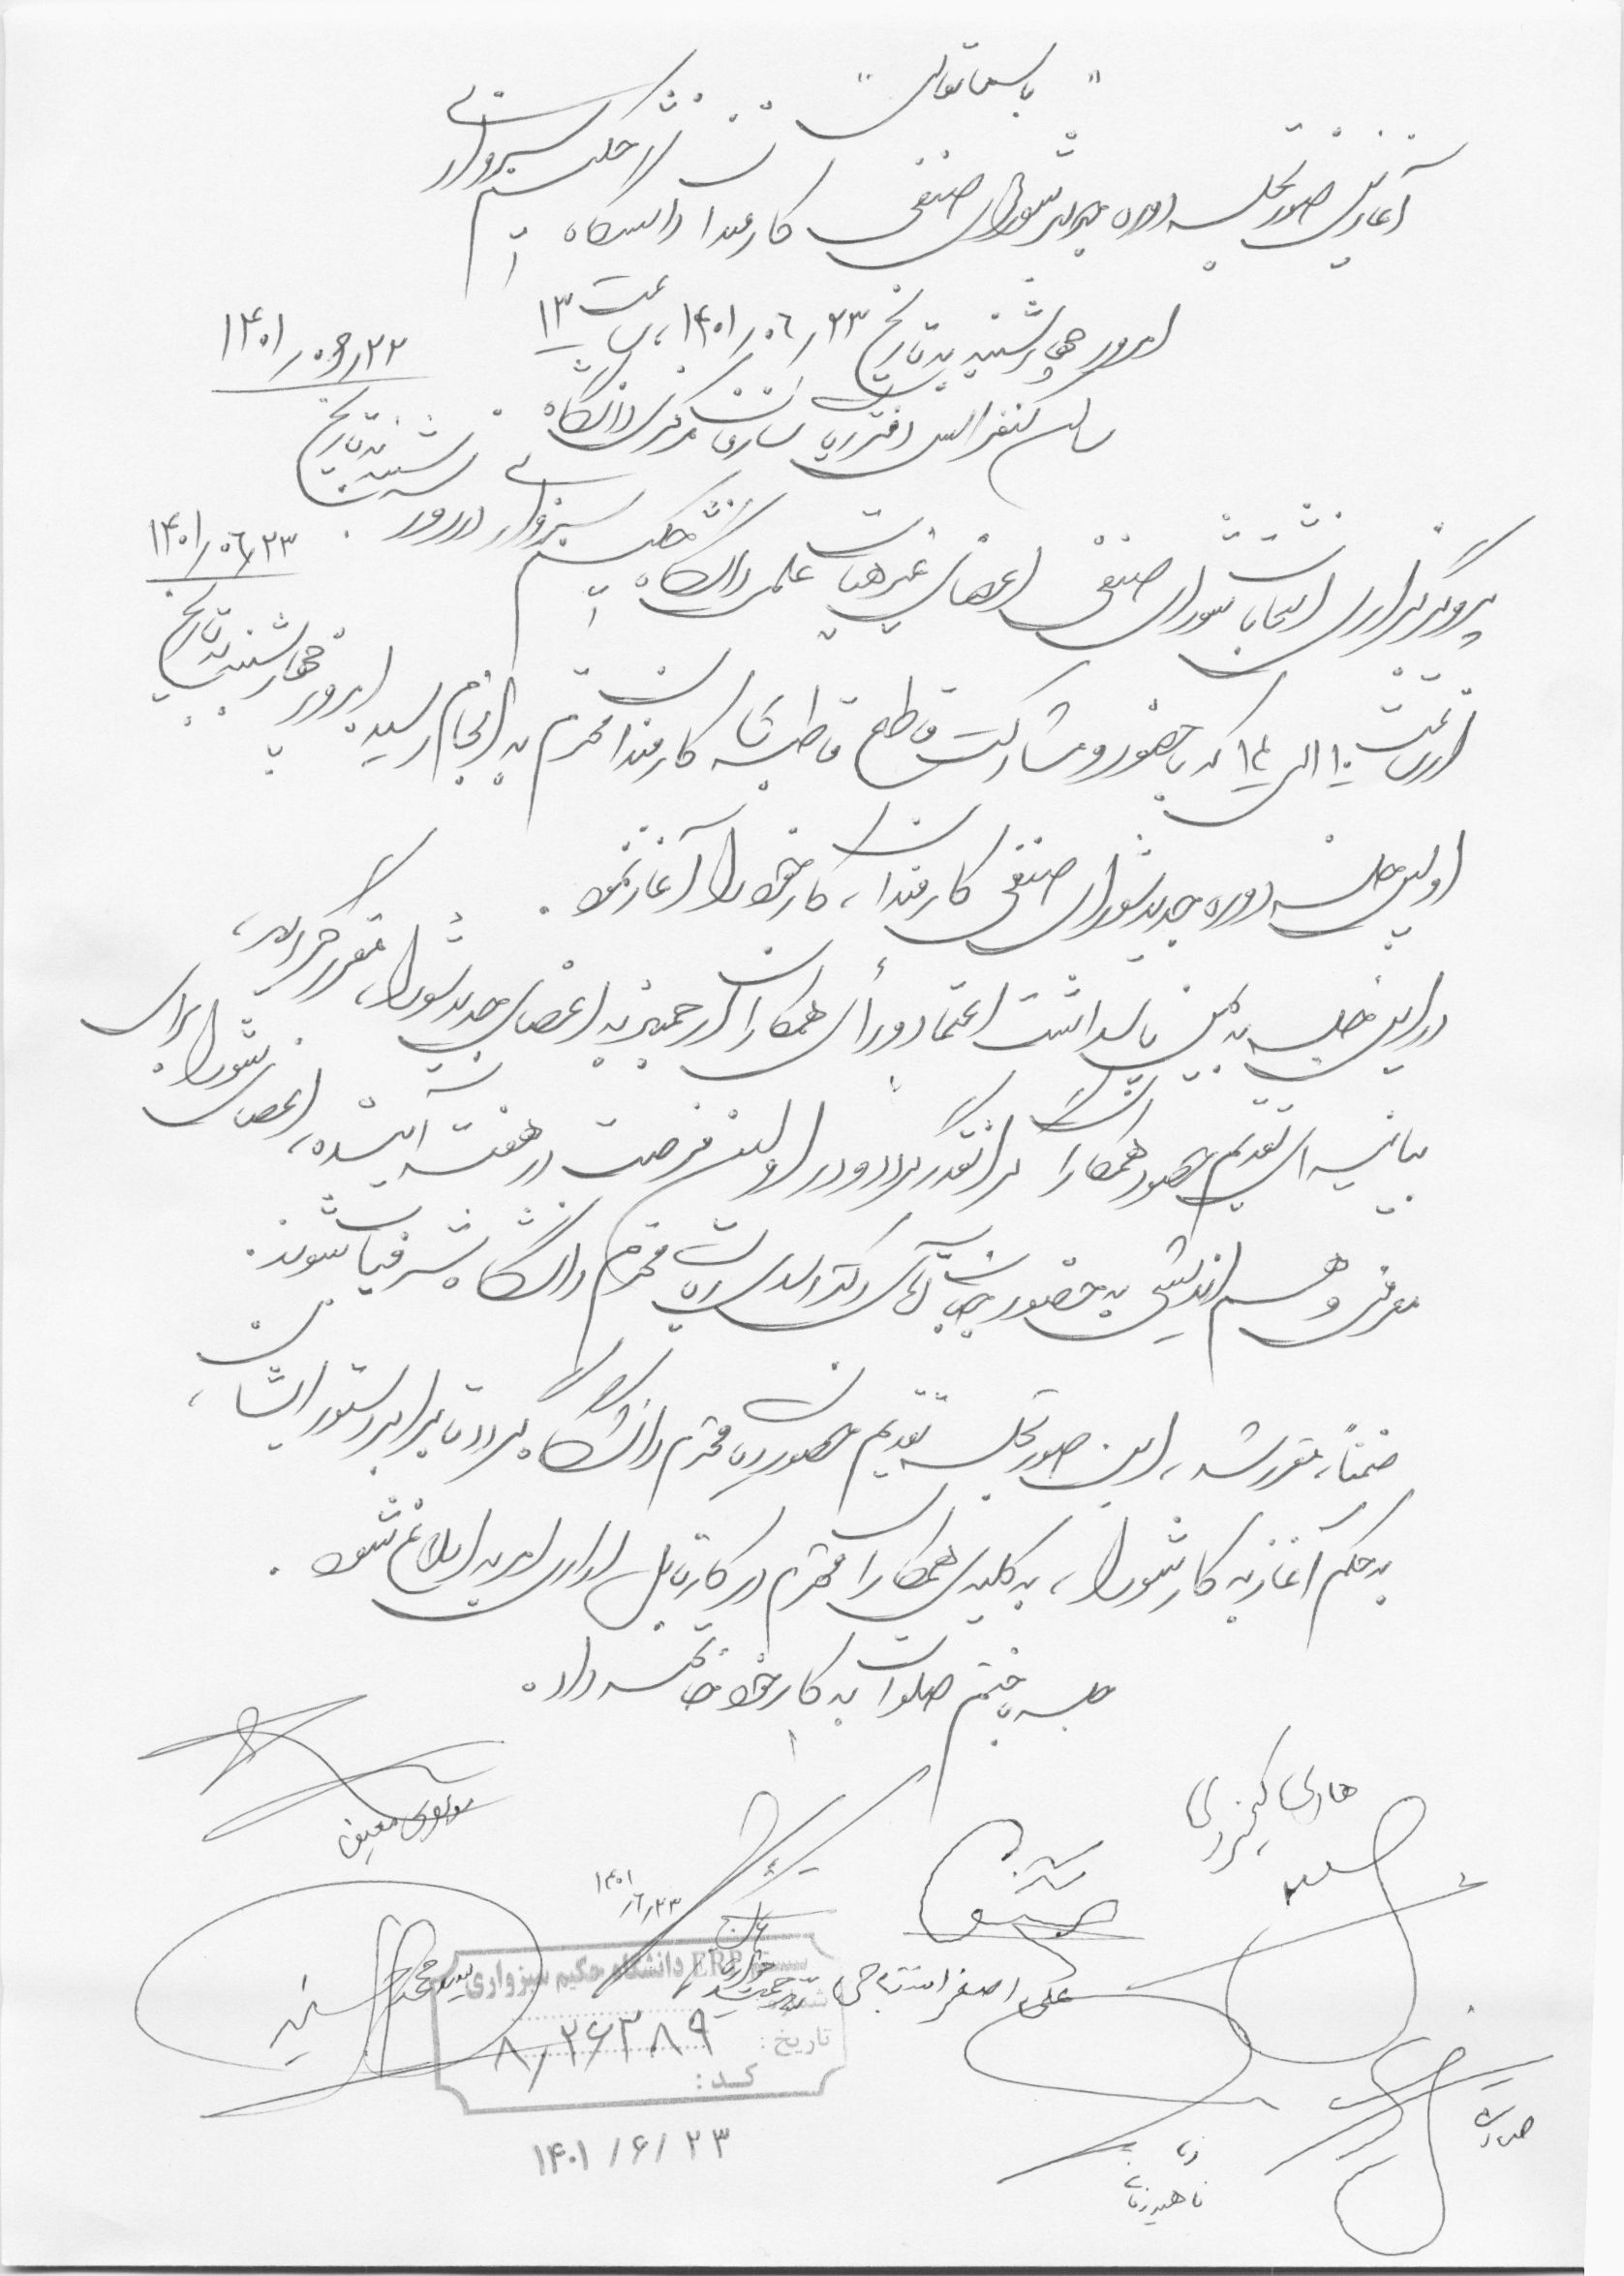 " باسمه تعالی "
آغازین صورتجلسه دوره جدید شورای صنفی کارمندان دانشگاه حکیم سبزواری
امروز چهارشنبه به تاریخ ۱۴۰۱/۰۶/۲۳، ساعت ۱۳
سالن کنفرانس دفتر ریاست سازمان مرکزی دانشگاه
پیرو برگزاری انتخابات شورای صنفی اعضای غیر هیات علمی دانشگاه حکیم سبزواری در روز سه شنبه به تاریخ ۱۴۰۱/۰۶/۲۲
از ساعت ۱۰ الی ۱۴ که با حضور و مشارکت قاطع قاطبه کارمندان محترم به انجام رسید، امروز چهارشنبه به تاریخ ۱۴۰۱/۰۶/۲۳
اولین جلسه دوره جدید شورای صنفی کارمندان، کار خود را آغاز نمود.
در این جلسه به پاسداشت اعتماد و رأی همکاران ارجمند به اعضای جدید شورا، مقرر گردید،
بیانیه ای تقدیم حضور همکاران گرانقدر گردد و در اولین فرصت در هفته آینده، اعضای شورا برای
معرفی و هم اندیشی به حضور جناب آقای دکتر ریاست محترم دانشگاه شرفیاب شوند.
ضمناً، مقرر شد، این صورتجلسه تقدیم حضور ریاست محترم دانشگاه گردد تا برابر دستور ایشان،
به حکم آغاز به کار شورا، به کلیه ی همکاران محترم در کارتابل اداری ابلاغ شود.
جلسه با ختم صلوات به کار خود خاتمه داد.
هادی گنجردی
موسوی معین
۱۴۰۱/۶/۲۳
علی اصغر استاجی
سید محمد حسینی
سیستم ERP دانشگاه حکیم سبزواری
شماره
تاریخ: ۸٫۲۶۳۸۹
کد:
۱۴۰۱/۶/۲۳
ناهید زمانی